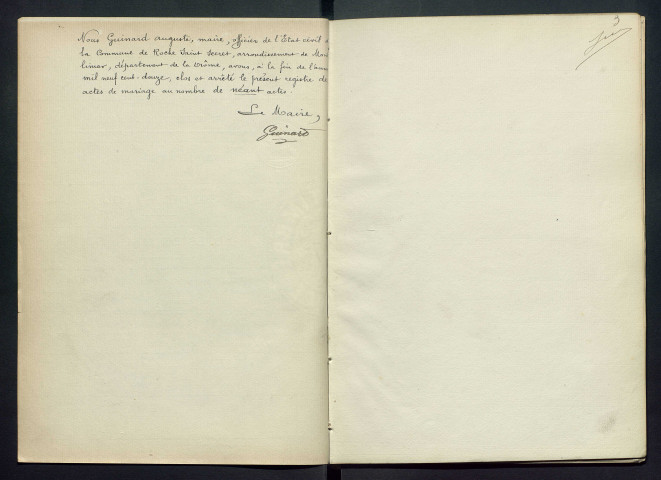 Nous Guinard Auguste, maire, officier de l'Etat civil
la Commune de Roche Saint Secret, arrondissement de
limar, département de la Drôme, avons, à la fin de l'année
mil neuf cent-douze, clos et arrêté le présent registre de
actes de mariage au nombre de néant actes.
Le Maire,
Guinard
3